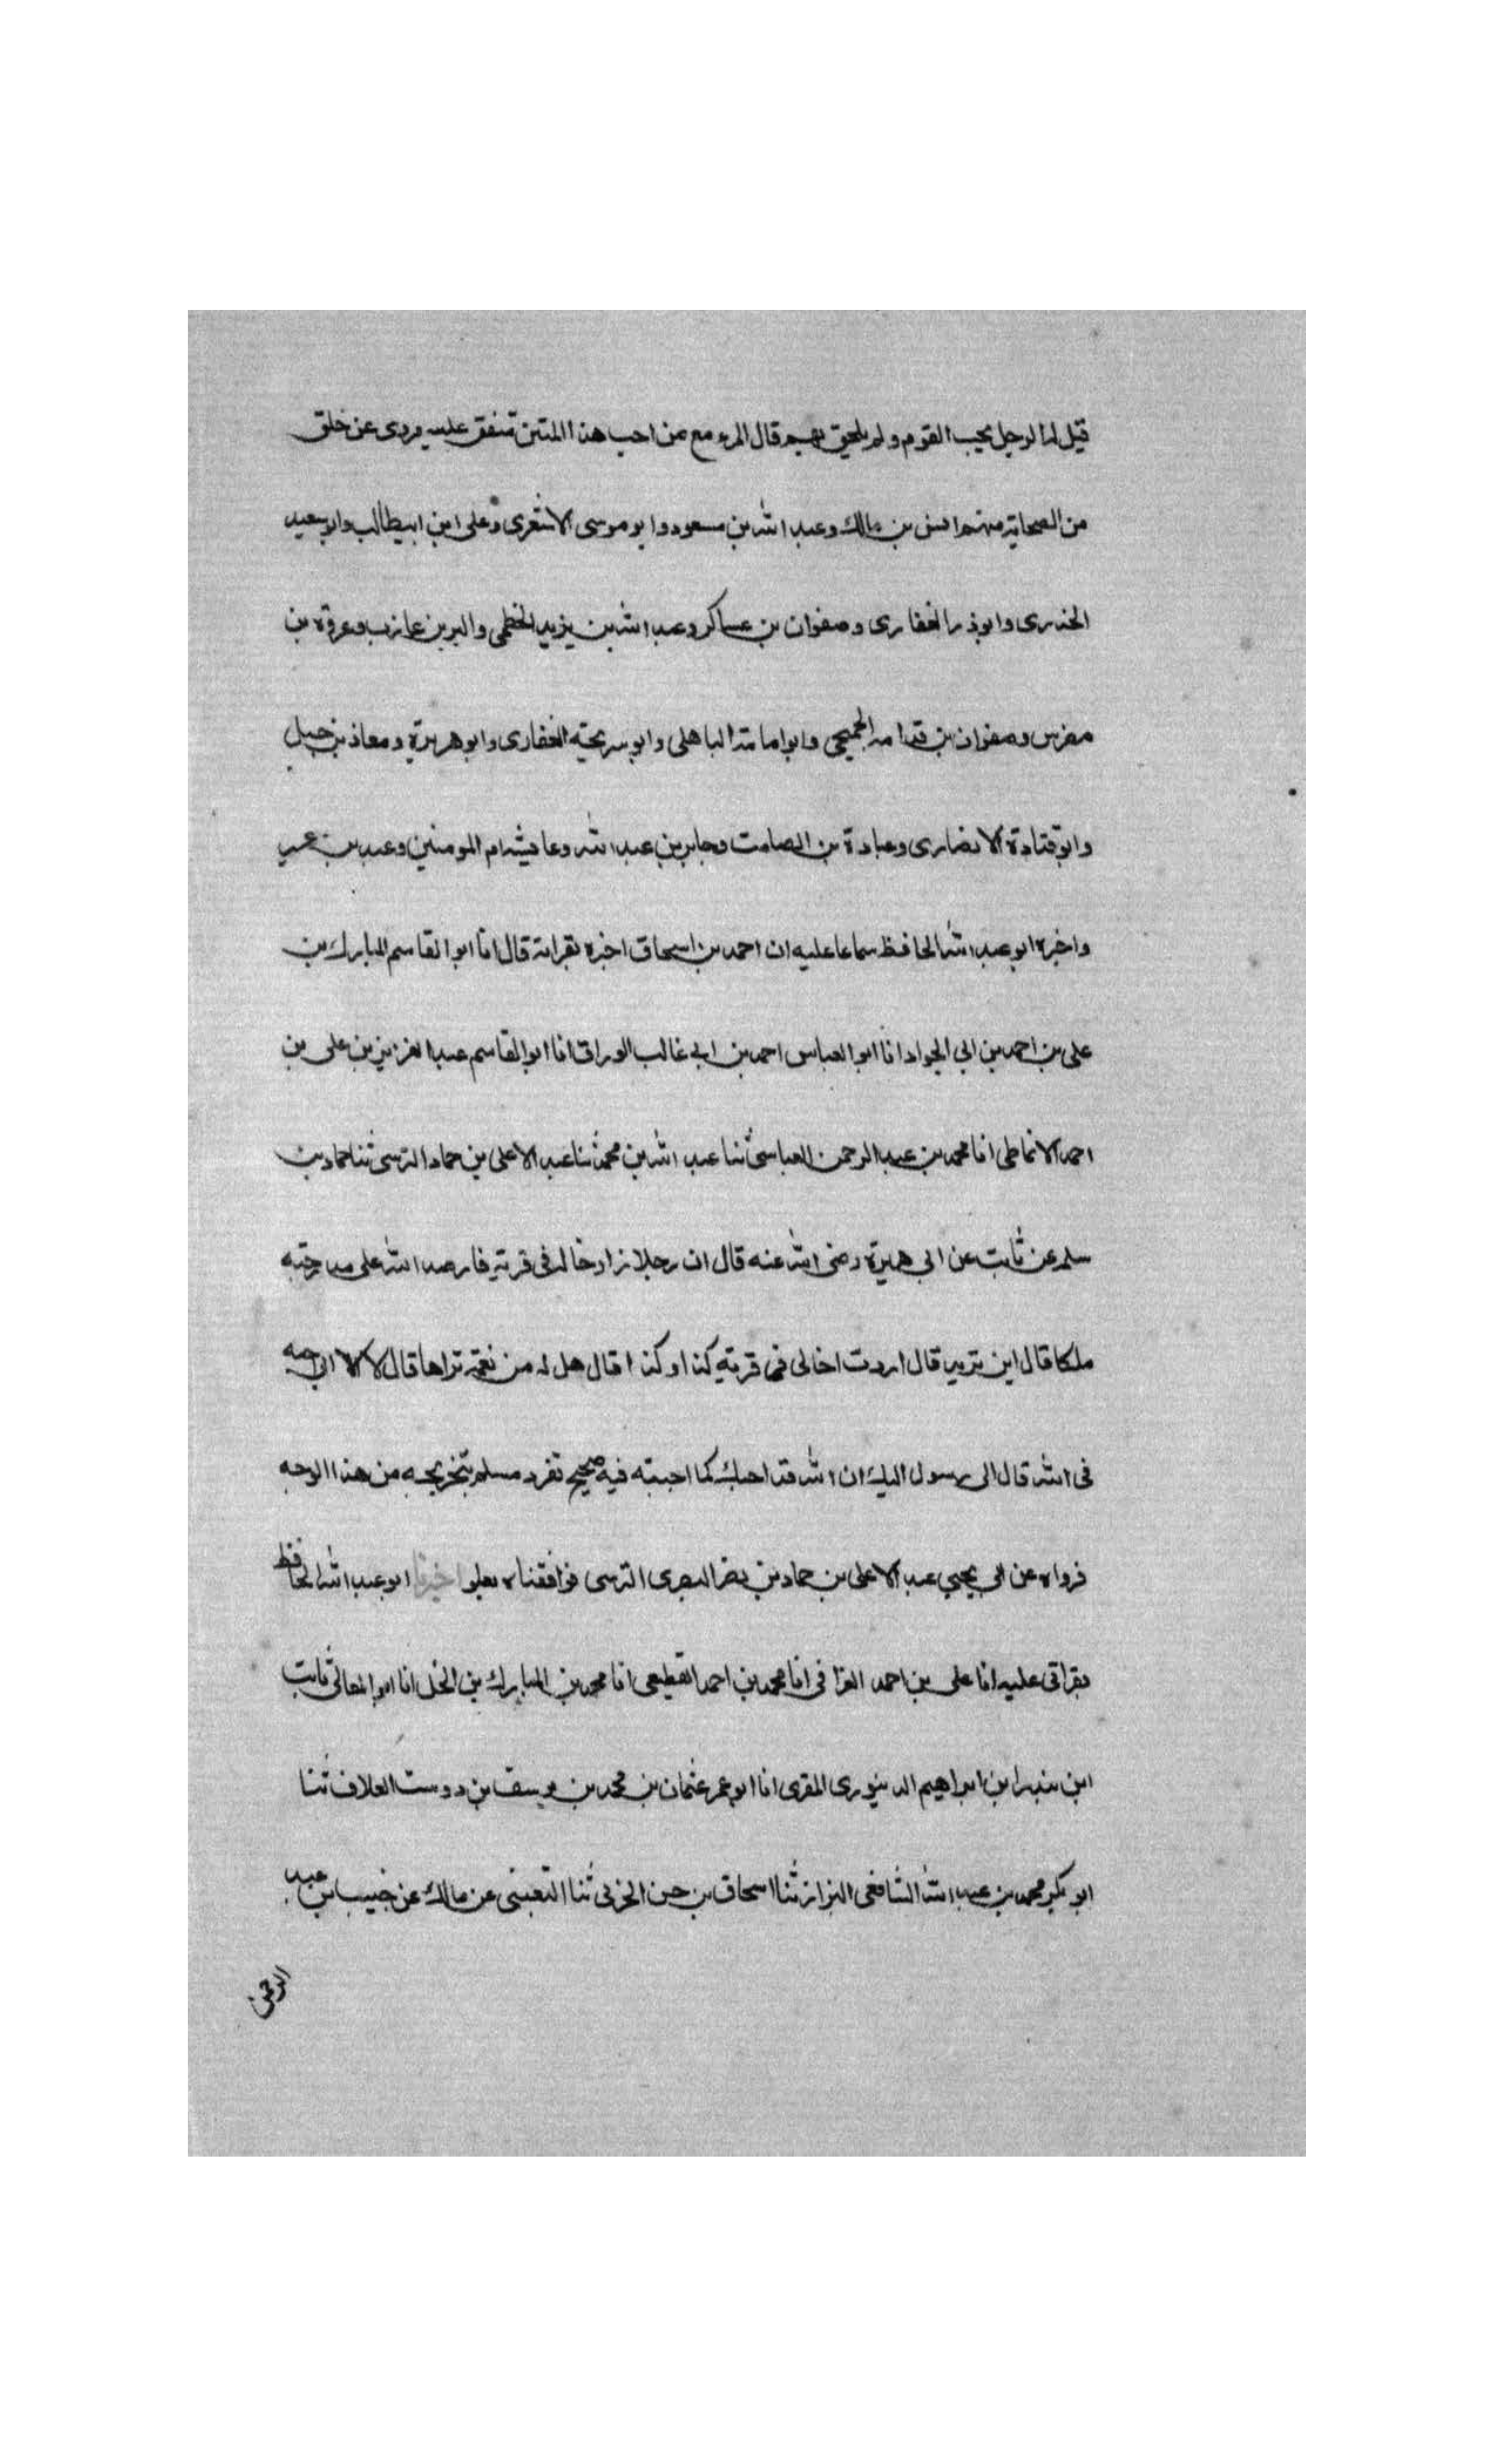 قيل له الرجل يحب القوم ولم يلحق بهم قال المرء مع من احب هذا المتن متفق عليه مروى عن خلق
من الصحابة منهم انس بن مالك وعبد الله بن مسعود وابو موسى الاشعرى وعلى ابن ابيطالب وابو سعيد
الخدرى وابو ذر الغفارى وصفوان بن عساكر وعبد الله بن يزيد الخطمى والبر بن عازب وعروة بن
مضرس وصفوان بن قدامه الجمحى وابو امامة الباهلى وابو سريحة الغفارى وابو هريرة ومعاذ بن جبل
وابو قتادة الانصارى وعبادة بن الصامت وجابر بن عبد الله وعايشه ام المومنين وعبيد بن عمير
واخبره ابو عبد الله الحافظ سماعا عليه ان احمد بن اسحاق اخبره بقراته قال انا ابو القاسم المبارك بن
على بن احمد بن ابي الجواد انا ابو العباس احمد بن ابي غالب الوراق انا ابو القاسم عبد العزيز بن على بن
احمد الانماطى انا محمد بن عبد الرحمن العباسى ثنا عبد الله بن محمد ثنا عبد الاعلى بن حماد النرسى ثنا حماد بن
سلمه عن ثابت عن ابى هريرة رضى الله عنه قال ان رجلا زار اخا له فى قرية فارصد الله على مدرجته
ملكا قال اين تريد قال اردت اخا لى فى قرية كذا وكذا قال هل له من نعمة تراها قال لا الا انى احبه
فى الله قال انى رسول اليك ان الله قد احبك كما احببته فيه صحيح تفرد مسلم بتخريجه من هذا الوجه
فرواه عن ابى يحيي عبد الاعلى بن حماد بن نصر البصرى النرسى فوافقناه بعلو اخبرنا ابو عبد الله الحافظ
بقراتى عليه انا على بن احمد الغرافى انا محمد بن احمد القطيعى انا محمد بن المبارك بن الخل انا ابو المعالى ثابت
ابن بندار بن ابراهيم الدينورى المقرى انا ابو عمر عثمان بن محمد بن يوسف بن دوست العلاف ثنا
ابو بكر محمد بن عبد الله الشافعى البزاز ثنا اسحاق بن حسن الحربى ثنا القعبنى عن مالك عن خبيب بن عبد
الرحمن